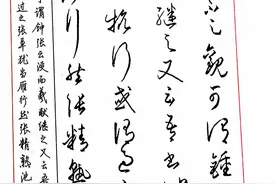 不足觀可謂鍾
繼之又云吾書
抗行或謂過
行然張精熟
謂鍾張云沒而羲獻繼之又云吾
過之張草猶當雁行然張精熟池